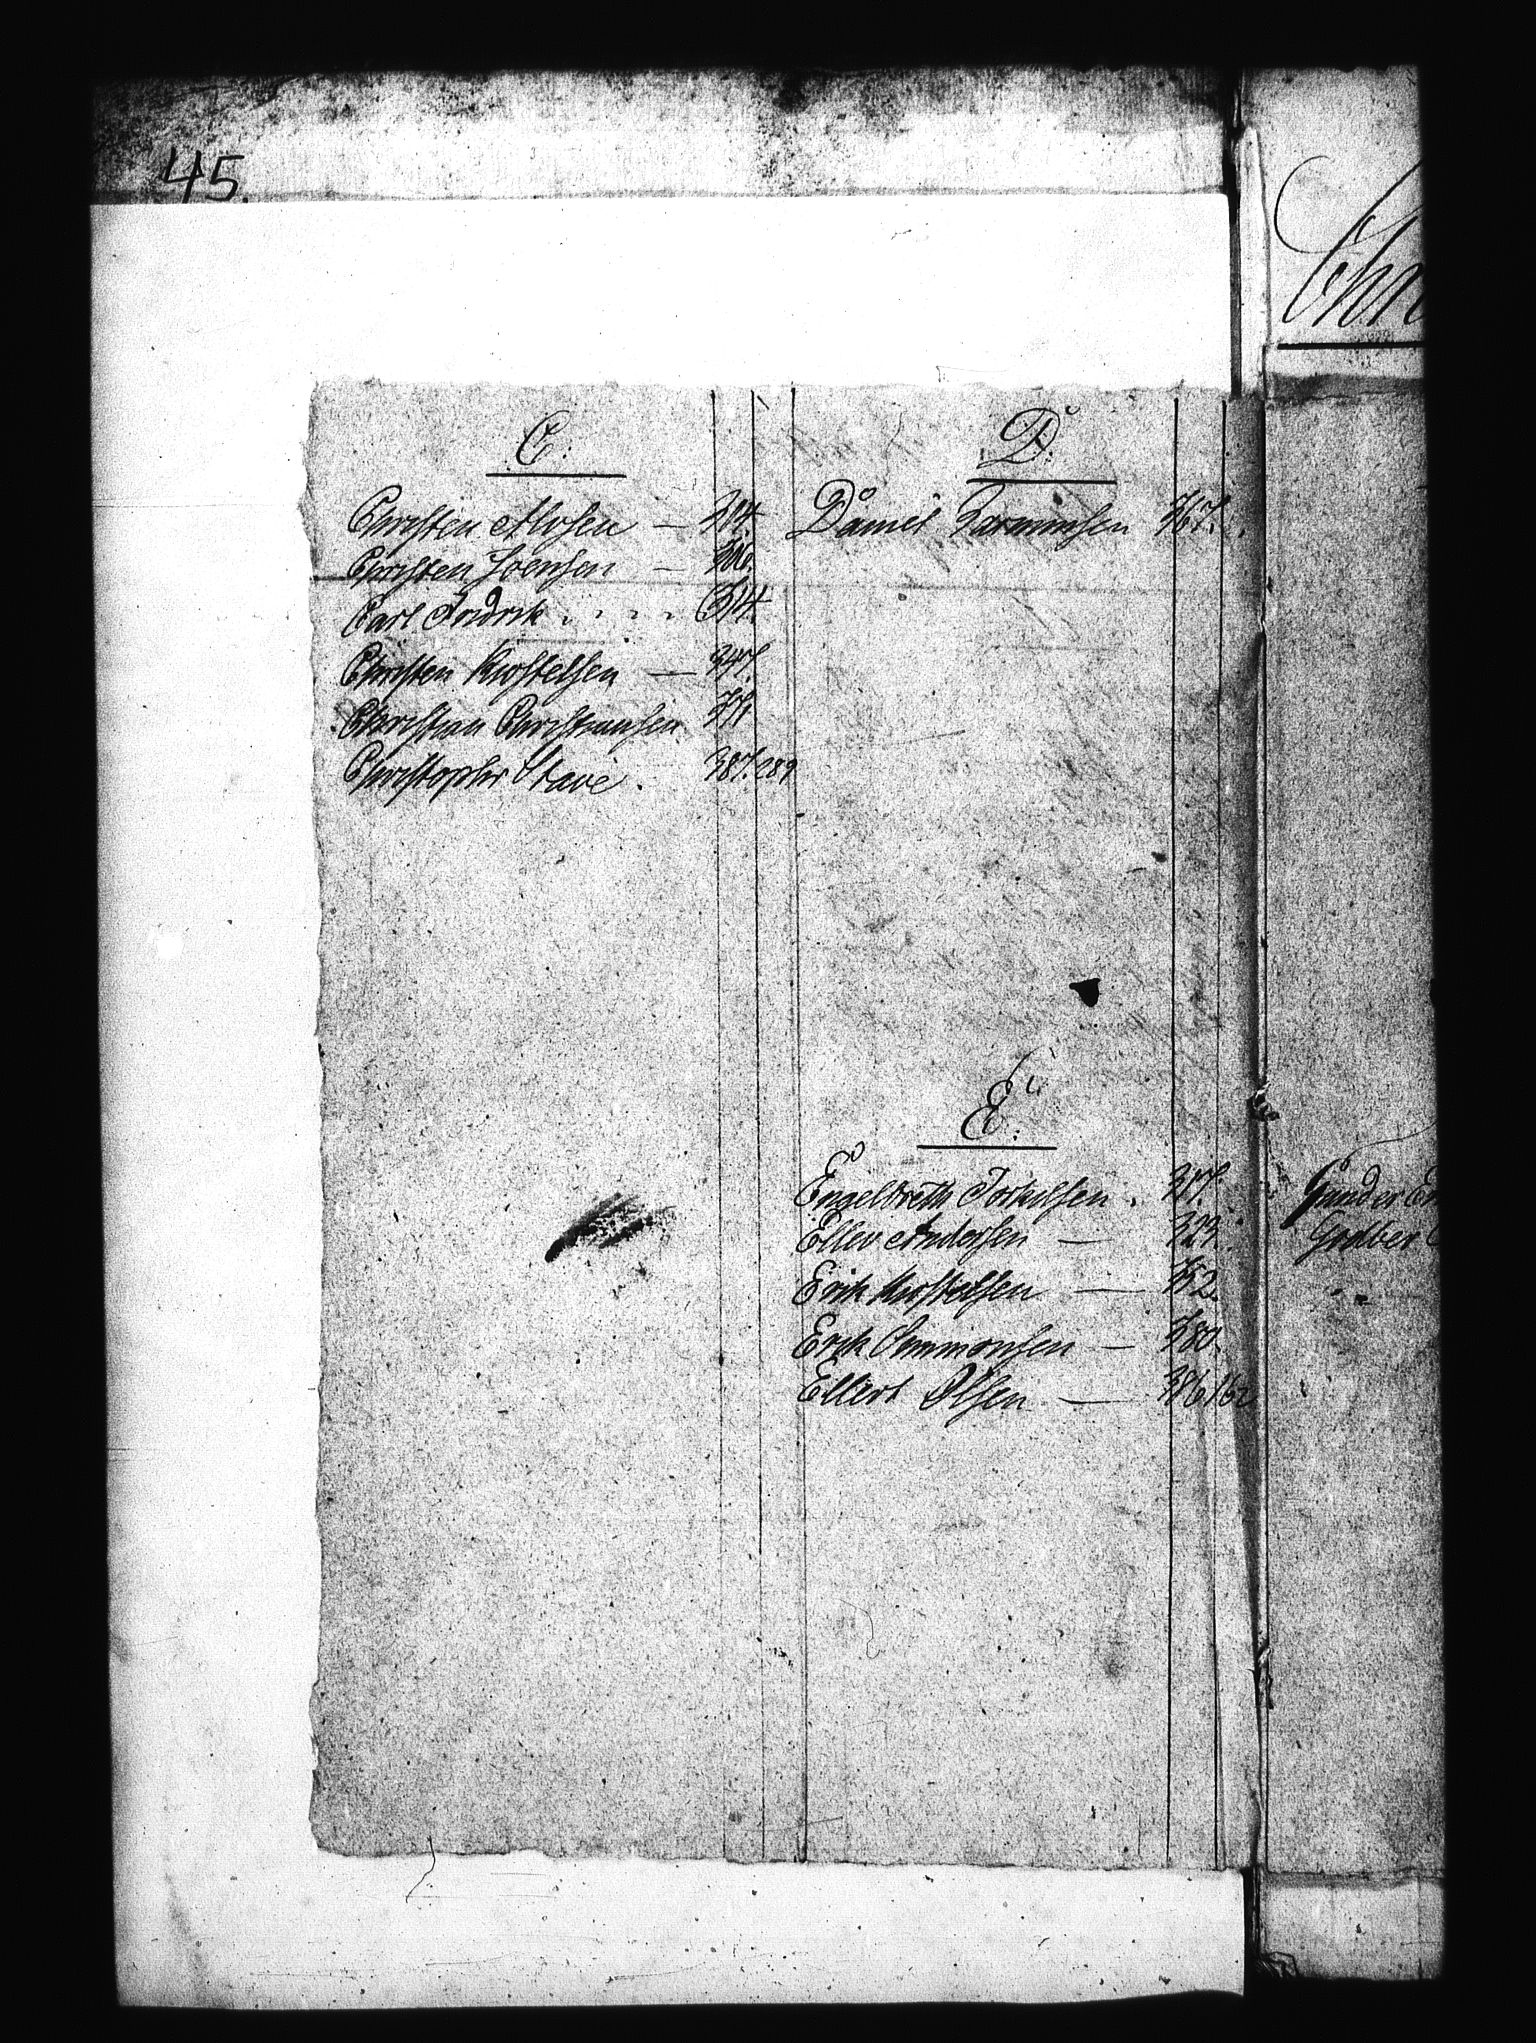 45.
C:
Christen Alvsen — 284
Christen Joensen — 306.
Carl Fridrik . . . . 314.
Christen Kiostelsen — 347.
Christian Christiansen 371
Christopher Stave. 387. 289
D:
Daniel 367.
E:
Engelbreth Torkilsen . 317.
Ellev Andersen — 323.
Erik Kiostelsen — 352.
Erik Simmonsen — 380.
Ellert Olsen — 386 162
Chri
Gunder